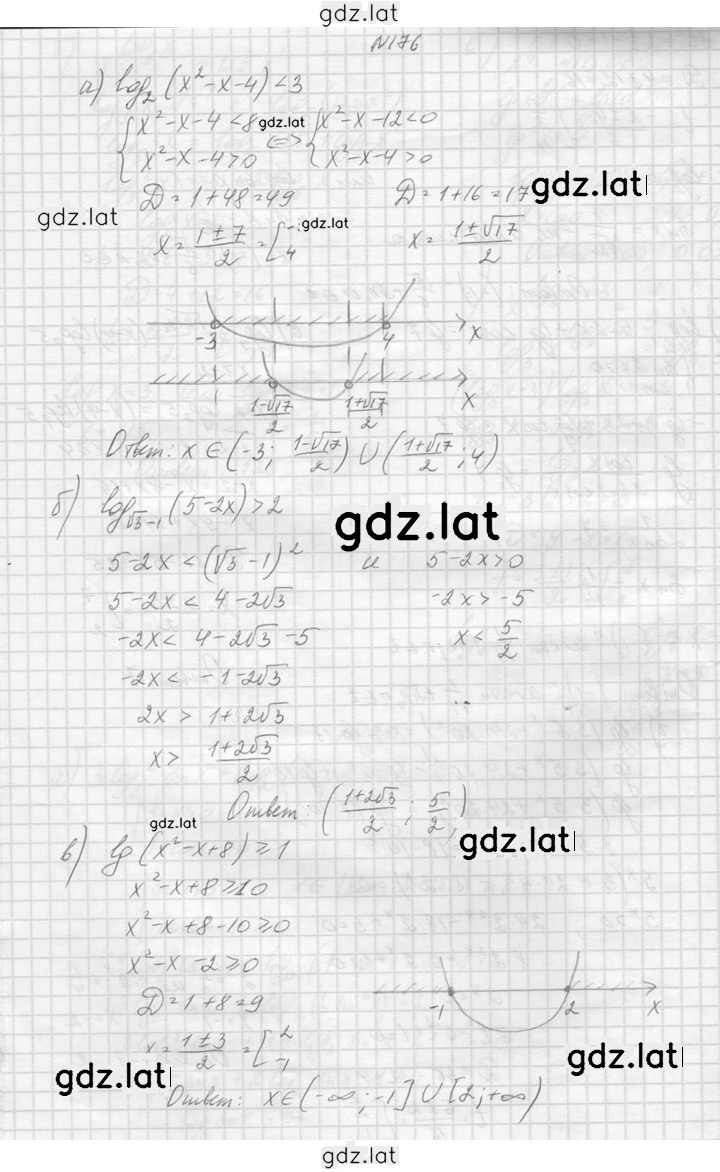 gdz.lat
N176
а) log₂(x²-x-4)<3
{x²-x-4<8 gdz.lat <=> {x²-x-12<0
{x²-x-4>0 {x²-x-4>0
gdz.lat D=1+48=49 D=1+16=17 gdz.lat
x=(1±7)/2=[- gdz.lat
4
x=(1±√17)/2
-3 4 x
(1-√17)/2 (1+√17)/2 x
Ответ: x∈(-3; (1-√17)/2)∪((1+√17)/2; 4)
б) log_(√3-1)(5-2x)>2
gdz.lat
5-2x<(√3-1)² и 5-2x>0
5-2x<4-2√3 -2x>-5
-2x<4-2√3-5 x<5/2
-2x<-1-2√3
2x>1+2√3
x>(1+2√3)/2
Ответ: ((1+2√3)/2; 5/2)
gdz.lat
в) lg(x²-x+8)≥1 gdz.lat
x²-x+8≥10
x²-x+8-10≥0
x²-x-2≥0
D=1+8=9
-1 2 x
x=(1±3)/2=[2
-1
gdz.lat gdz.lat
Ответ: x∈(-∞;-1]∪[2;+∞)
gdz.lat